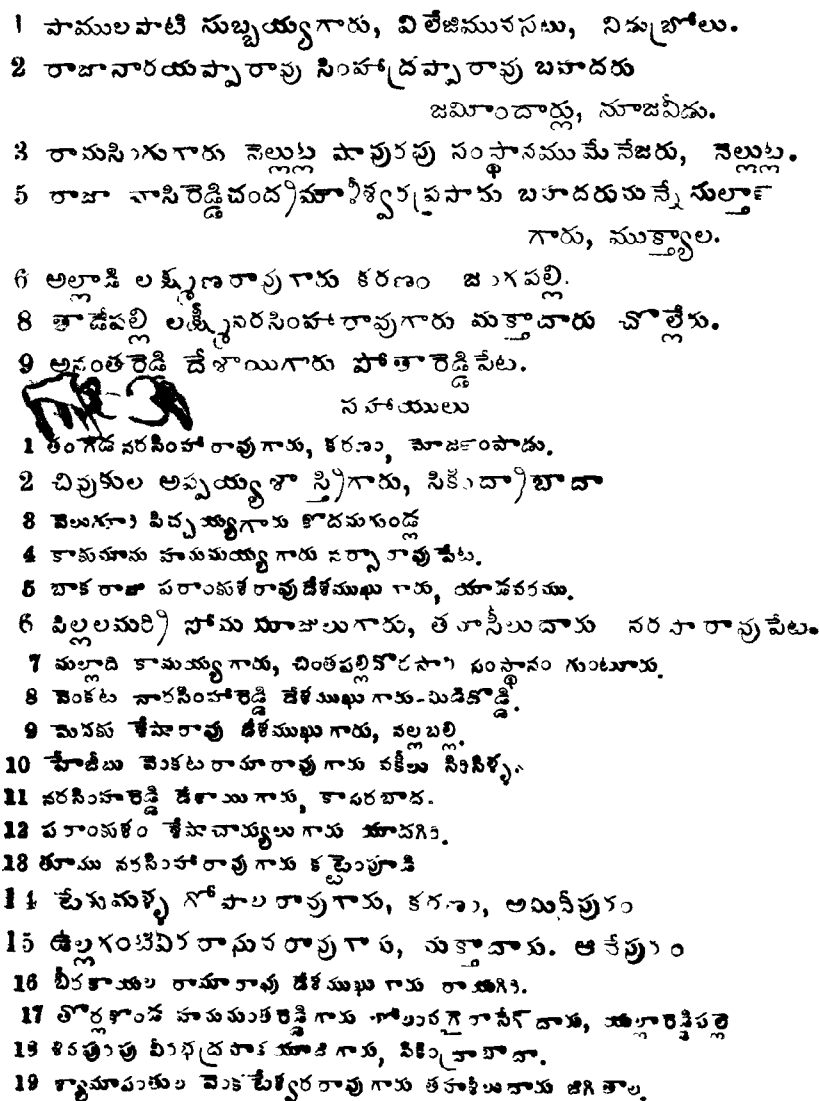 1 పాములపాటి సుబ్బయ్యగారు, విలేజిమునసబు, నిడుబ్రోలు.
2 రాజానారయప్పారావు సింహాద్రప్పారావు బహదరు
జమీందార్లు, నూజవీడు.
3 రామసింగుగారు నెల్లుట్ల షాపురపు సంస్థానము మేనేజరు, నెల్లుట్ల.
5 రాజా వాసిరెడ్డిచంద్రమౌళీశ్వరప్రసాదు బహదరుమన్నేసుల్తాన్
గారు, ముక్త్యాల.
6 అల్లాడి లక్ష్మణరావుగారు కరణం జంగపల్లి.
8 తాడేపల్లి లక్ష్మీనరసింహారావుగారు మక్తాదారు చొల్లేరు.
9 అనంతరెడ్డి దేశాయిగారు పోతారెడ్డిపేట.
సహాయులు
1 తంగెడ నరసింహారావుగారు, కరణం, మోర్జంపాడు.
2 చివుకుల అప్పయ్యశాస్త్రిగారు, సికుంద్రాబాదా
3 వెలుగూరి పిచ్చయ్యగారు కొదమగుండ్ల
4 హనుమయ్య గారు నర్సారావుపేట.
5 బాకరాజు పరాంకుశరావుదేశముఖు గారు, యాడవరము.
6 పిల్లలమర్రి సోమరాజులుగారు, తహసీలుదారు నరసారావుపేట.
7 మల్లాది కామయ్యగారు, సంస్థానం గుంటూరు.
8 వెంకట నారసింహారెడ్డి దేశముఖు గారు-మిడిదొడ్డి.
9 మెనకు శేషారావు దేశముఖుగారు, నల్లబల్లి.
10 హేజీబు వెంకటరామారావుగారు వకీలు సిరిసిళ్ళ.
11 నరసింహారెడ్డి దేశాయిగారు, కాసరబాద.
12 పరాంకుశం శేషాచార్యులుగారు యాదగిరి.
13 తూము నరసింహారావుగారు కట్టెంపూడి
14 టేకుమళ్ళ గోపాలరావుగారు, కరణం, అమీనీపురం
15 రావుగారు, మక్తాదారు.
16 బీరకాయల రామారావు దేశముఖు గారు రాయగిరి.
17 హనుమంతరెడ్డిగారు దారు, యల్లారెడ్డిపల్లె
18 గారు, సికింద్రాబాదా.
19 వెంకటేశ్వరరావుగారు తహశీలుదారు జగిత్యాల.